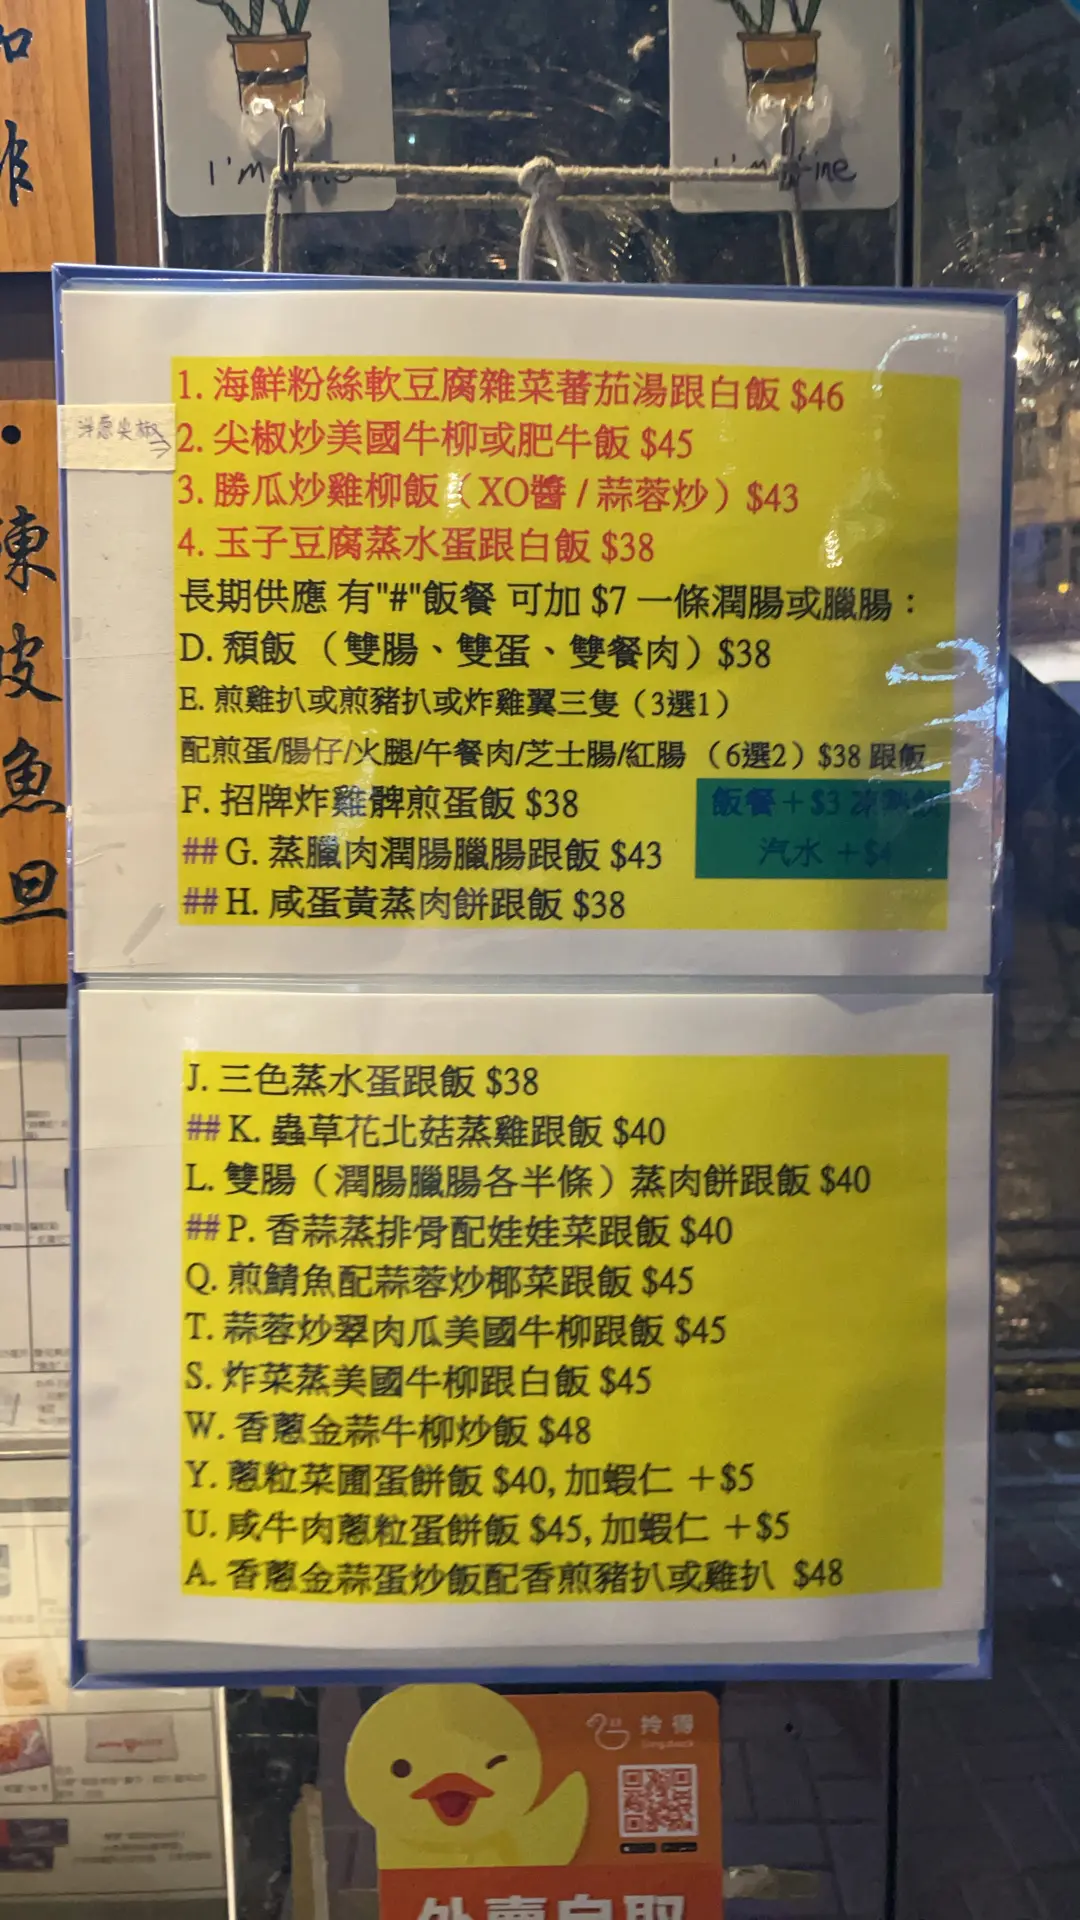 I'm fine
I'm fine
洋蔥尖椒
1. 海鮮粉絲軟豆腐雜菜蕃茄湯跟白飯 $46
2. 尖椒炒美國牛柳或肥牛飯 $45
3. 勝瓜炒雞柳飯（XO醬 / 蒜蓉炒）$43
4. 玉子豆腐蒸水蛋跟白飯 $38
長期供應 有"#"飯餐 可加 $7 一條潤腸或臘腸：
D. 頹飯 （雙腸、雙蛋、雙餐肉）$38
E. 煎雞扒或煎豬扒或炸雞翼三隻（3選1）
配煎蛋/腸仔/火腿/午餐肉/芝士腸/紅腸 （6選2）$38 跟飯
F. 招牌炸雞髀煎蛋飯 $38
飯餐＋$3 凍熱飲
汽水 ＋$4
## G. 蒸臘肉潤腸臘腸跟飯 $43
## H. 咸蛋黃蒸肉餅跟飯 $38
J. 三色蒸水蛋跟飯 $38
## K. 蟲草花北菇蒸雞跟飯 $40
L. 雙腸（潤腸臘腸各半條）蒸肉餅跟飯 $40
## P. 香蒜蒸排骨配娃娃菜跟飯 $40
Q. 煎鯖魚配蒜蓉炒椰菜跟飯 $45
T. 蒜蓉炒翠肉瓜美國牛柳跟飯 $45
S. 炸菜蒸美國牛柳跟白飯 $45
W. 香蔥金蒜牛柳炒飯 $48
Y. 蔥粒菜圃蛋餅飯 $40, 加蝦仁 ＋$5
U. 咸牛肉蔥粒蛋餅飯 $45, 加蝦仁 ＋$5
A. 香蔥金蒜蛋炒飯配香煎豬扒或雞扒 $48
陳皮魚旦
拎得
外賣自取